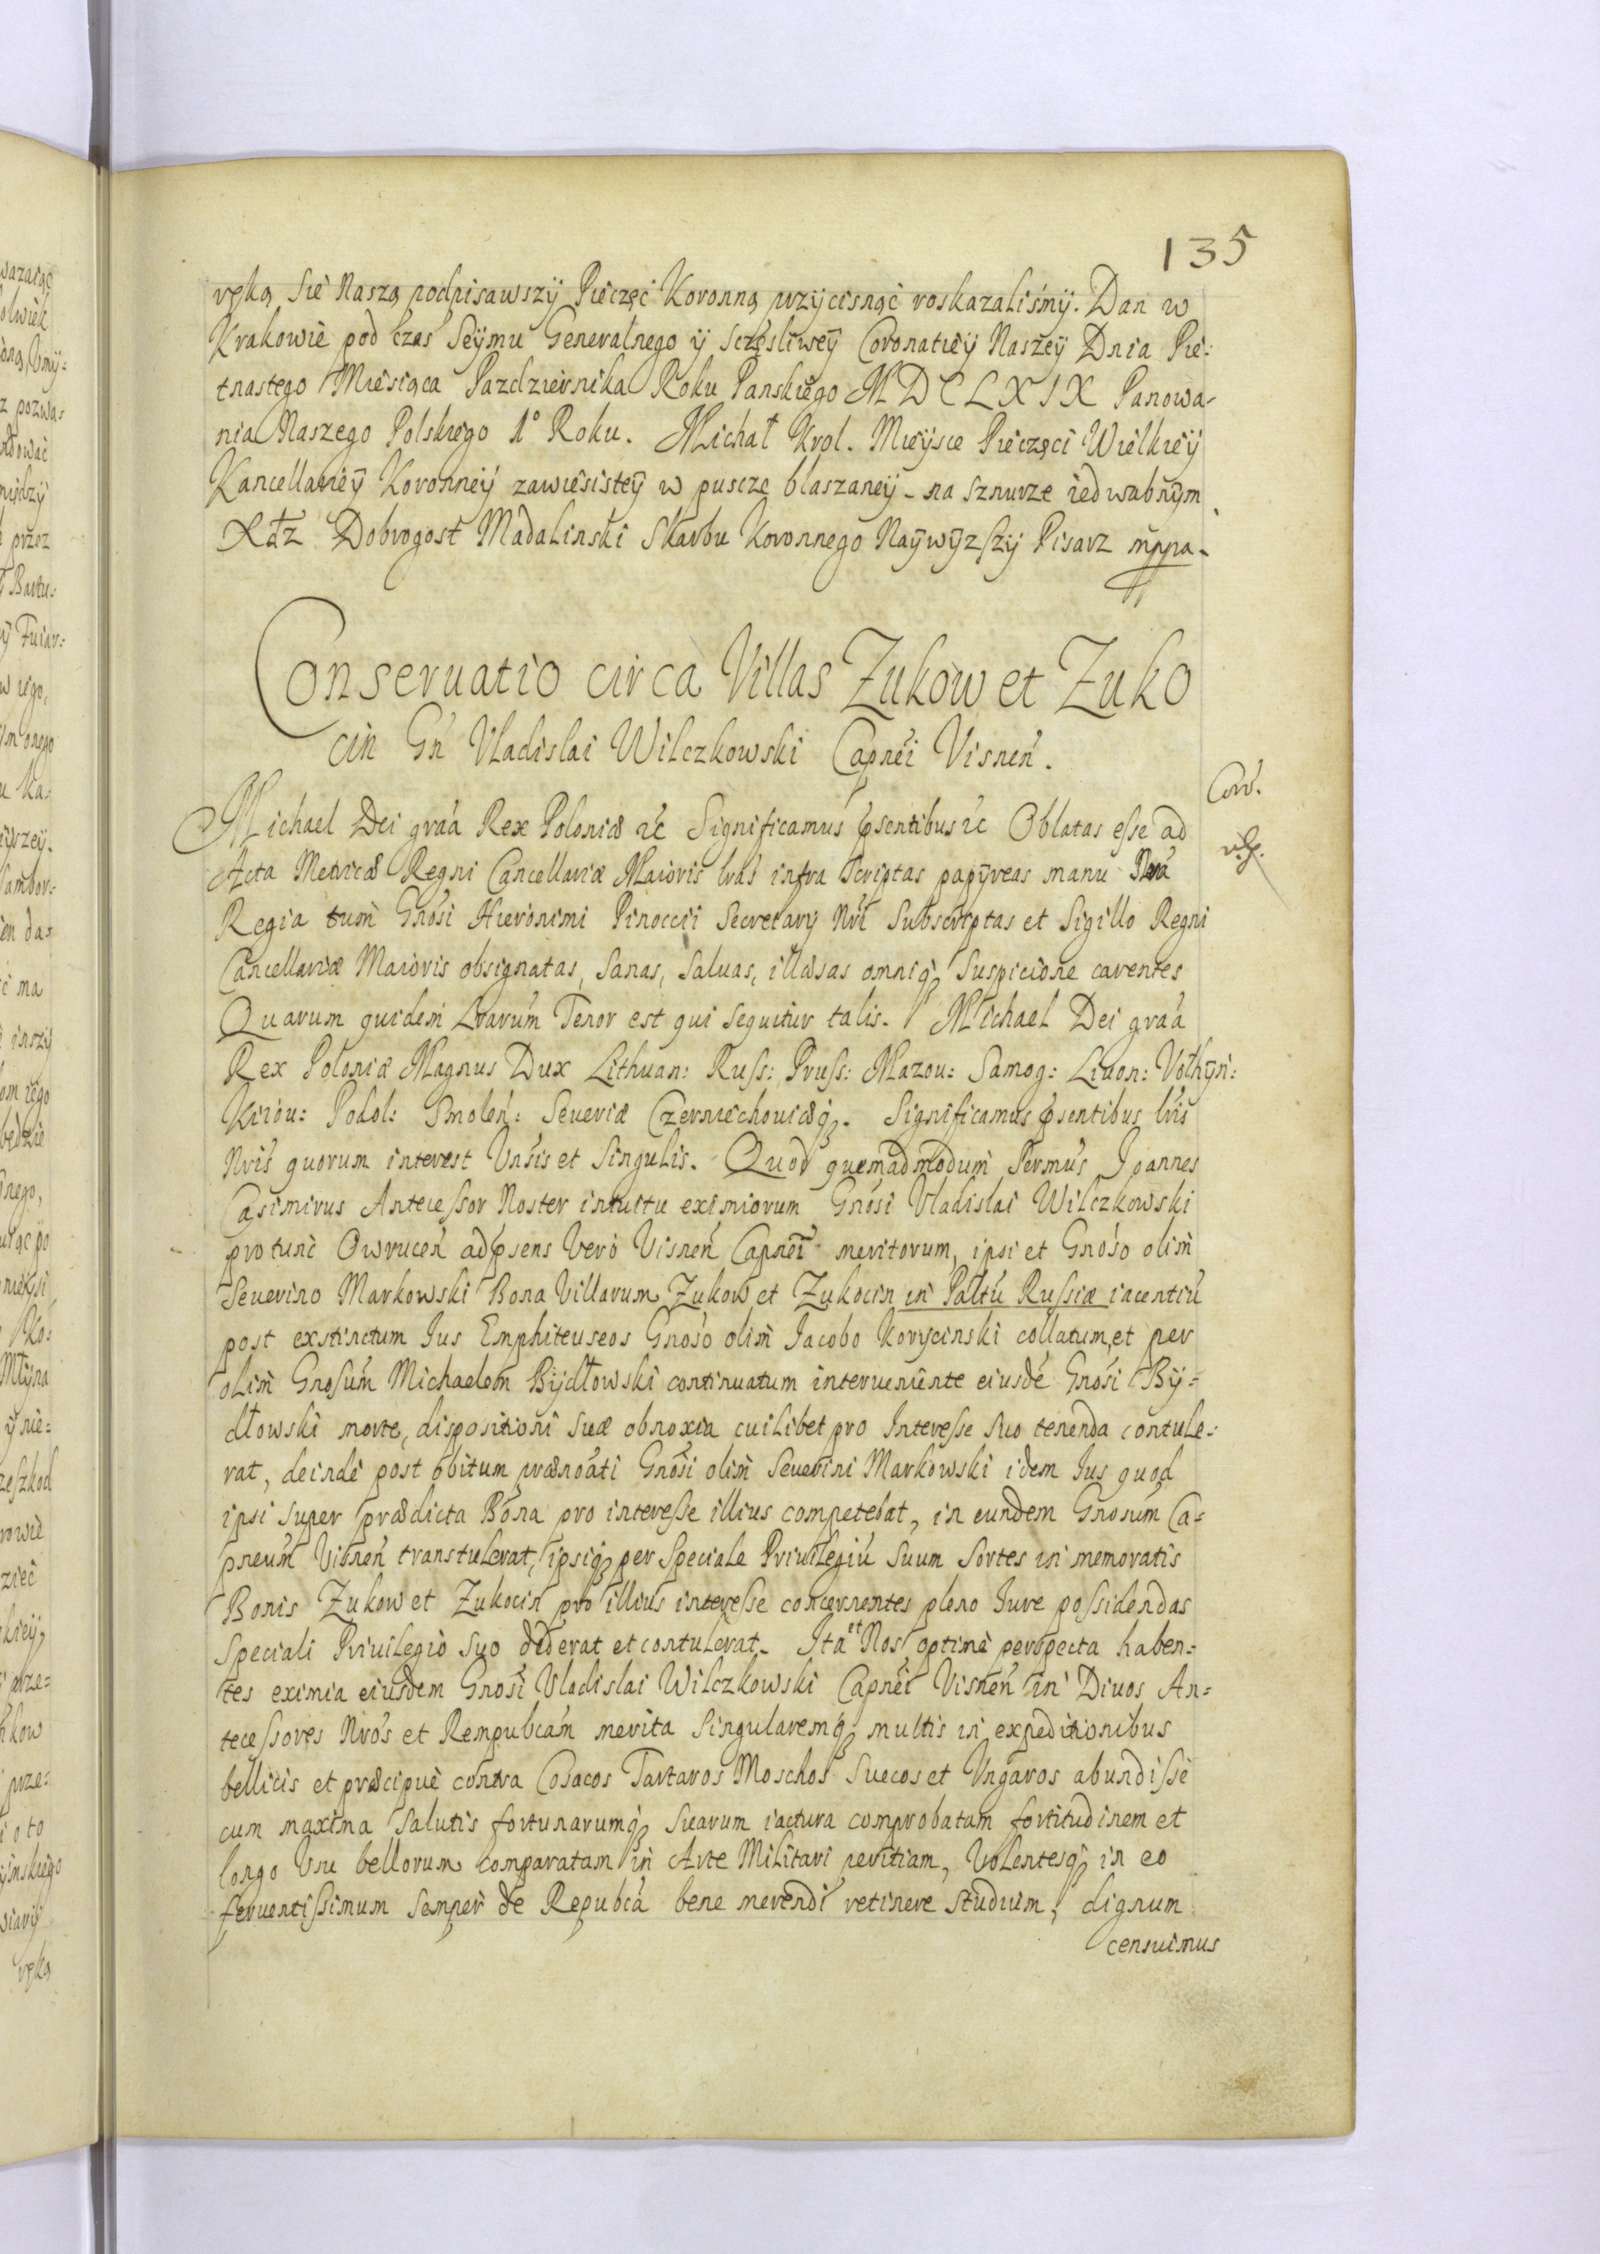 135
ręką się Naszą podpisawszy Pieczęć Koronną przycisnąć roskazaliśmy. Dan w
Krakowie pod czas Seymu Generalnego y sczęsliwey Coronatiey Naszey Dnia Pie:
tnastego Miesiąca Pazdziernika Roku Panskiego MDCLXIX Panowa-
nia Naszego Polskiego 1º Roku. Michał Krol. Mieysce Pieczęci Wielkiey
Kancellariey Koronney zawiesistey w puscze blaszaney - na sznurze iedwabnym
Xdz Dobrogost Madalinski Skarbu Koronnego Naywyzszy Pisarz mppa.
Conseruatio circa Villas Zukow et Zuko
cin Gń Vladislai Wilczkowski Capnéi Visneń.
Corr.
Michael Dei graá Rex Poloniæ &c Significamus psentibus &c Oblatas esse ad
Acta Metricæ Regni Cancellariæ Maioris lrás infra scriptas papyreas manu Nrá
Regia tum Gnósi Hieronimi Pinoccii Secretary Nrí Subscriptas et Sigillo Regni
Cancellariæ Maioris obsignatas, Sanas, Saluas, illæsas omniq Suspicione carentes
Quarum quidem Lrarum Tenor est qui sequitur talis. Michael Dei graá
Rex Poloniæ Magnus Dux Lithuan: Russ: Pruss: Mazou: Samog: Liuon: Volhyn:
Kiiou: Podol: Smoleń: Seueriæ Czerniechouiæq. Significamus psentibus lrís
Nrís quorum interest Vnsis et Singulis. Quod quemadmodum Sermus Joannes
Casimirus Antecessor Noster intuitu eximiorum Gnósi Vladislai Wilczkowski
protunc Owruceń ad psens Vero Visneń Capnéi meritorum, ipsi et Gnóso olim
Seuerino Markowski Bona Villarum Zukow et Zukocin in Paltú Russiæ iacentiú
post exstinctum Ius Emphiteuseos Gnóso olim Jacobo Korycinski collatum, et per
olim Gnosum Michaelem Bydłowski continuatum interueniente eiusdé Gnósi By=
dłowski morte, dispositioni suæ obnoxia cuilibet pro Interesse suo tenenda contule=
rat, deinde post obitum prænoáti Gnósi olim Seuerini Markowski idem Ius quod
ipsi super prædicta Bona pro interesse illius competebat, in eundem Gnosum Ca=
pneum Visneń transtulerat, ipsiq per Speciale Priuilegiú suum Sortes in memoratis
Bonis Zukow et Zukocin pro illius interesse concernentes pleno Iure possidendas
speciali Priuilegio suo dederat et contulerat. Ita et Nos optime perspecta haben=
tes eximia eiusdem Gnósi Vladislai Wilczkowski Capnéi Visneń in Diuos An=
tecessores Nrós et Rempubcám merita Singularemq multis in expeditionibus
bellicis et præcipuè contra Cosacos Tartaros Moschos Suecos et Vngaros abundisse
cum maxima Salutis fortunarumq Suarum iactura comprobatam fortitudinem et
longo Vsu bellorum comparatam in Arte Militari peritiam, Volentesq in eo
feruentissimum semper de Repubcá bene merendi retinere studium, dignum
censuimus